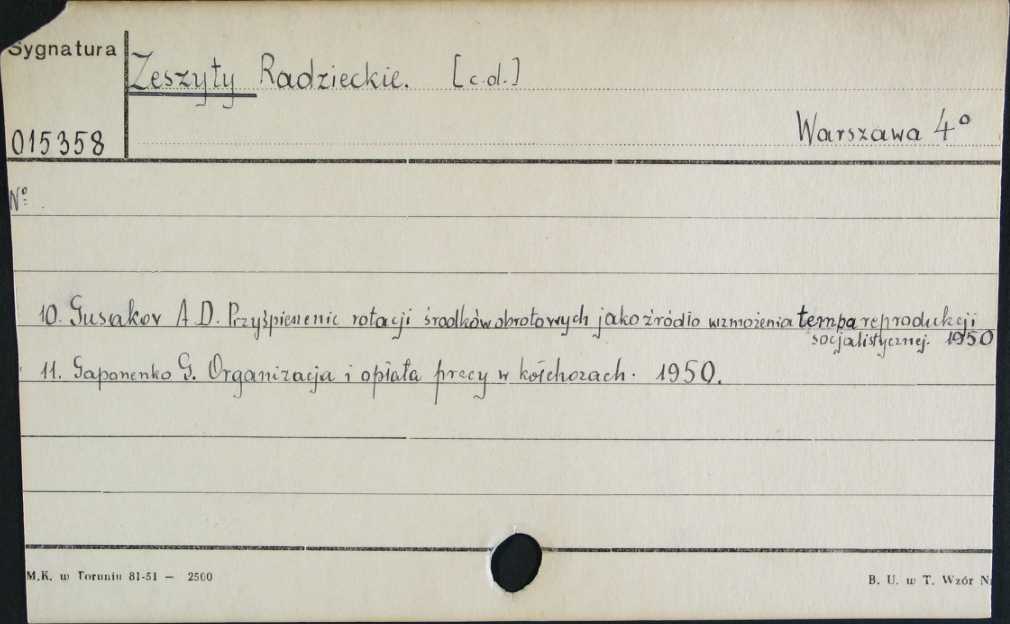 Sygnatura
Zeszyty Radzieckie. [c.d.]
Warszawa 4º
015358
Nº
10. Gusakov A D. Przyśpieszenie rotacji środków obrotowych jako źródło wzmożenia tempa reprodukcji
socjalistycznej. 1950
11. Gaponenko G. Organizacja i opłata pracy w kołchozach. 1950.
M.K. w Toruniu 81-51 — 2500
B. U. w T. Wzór N